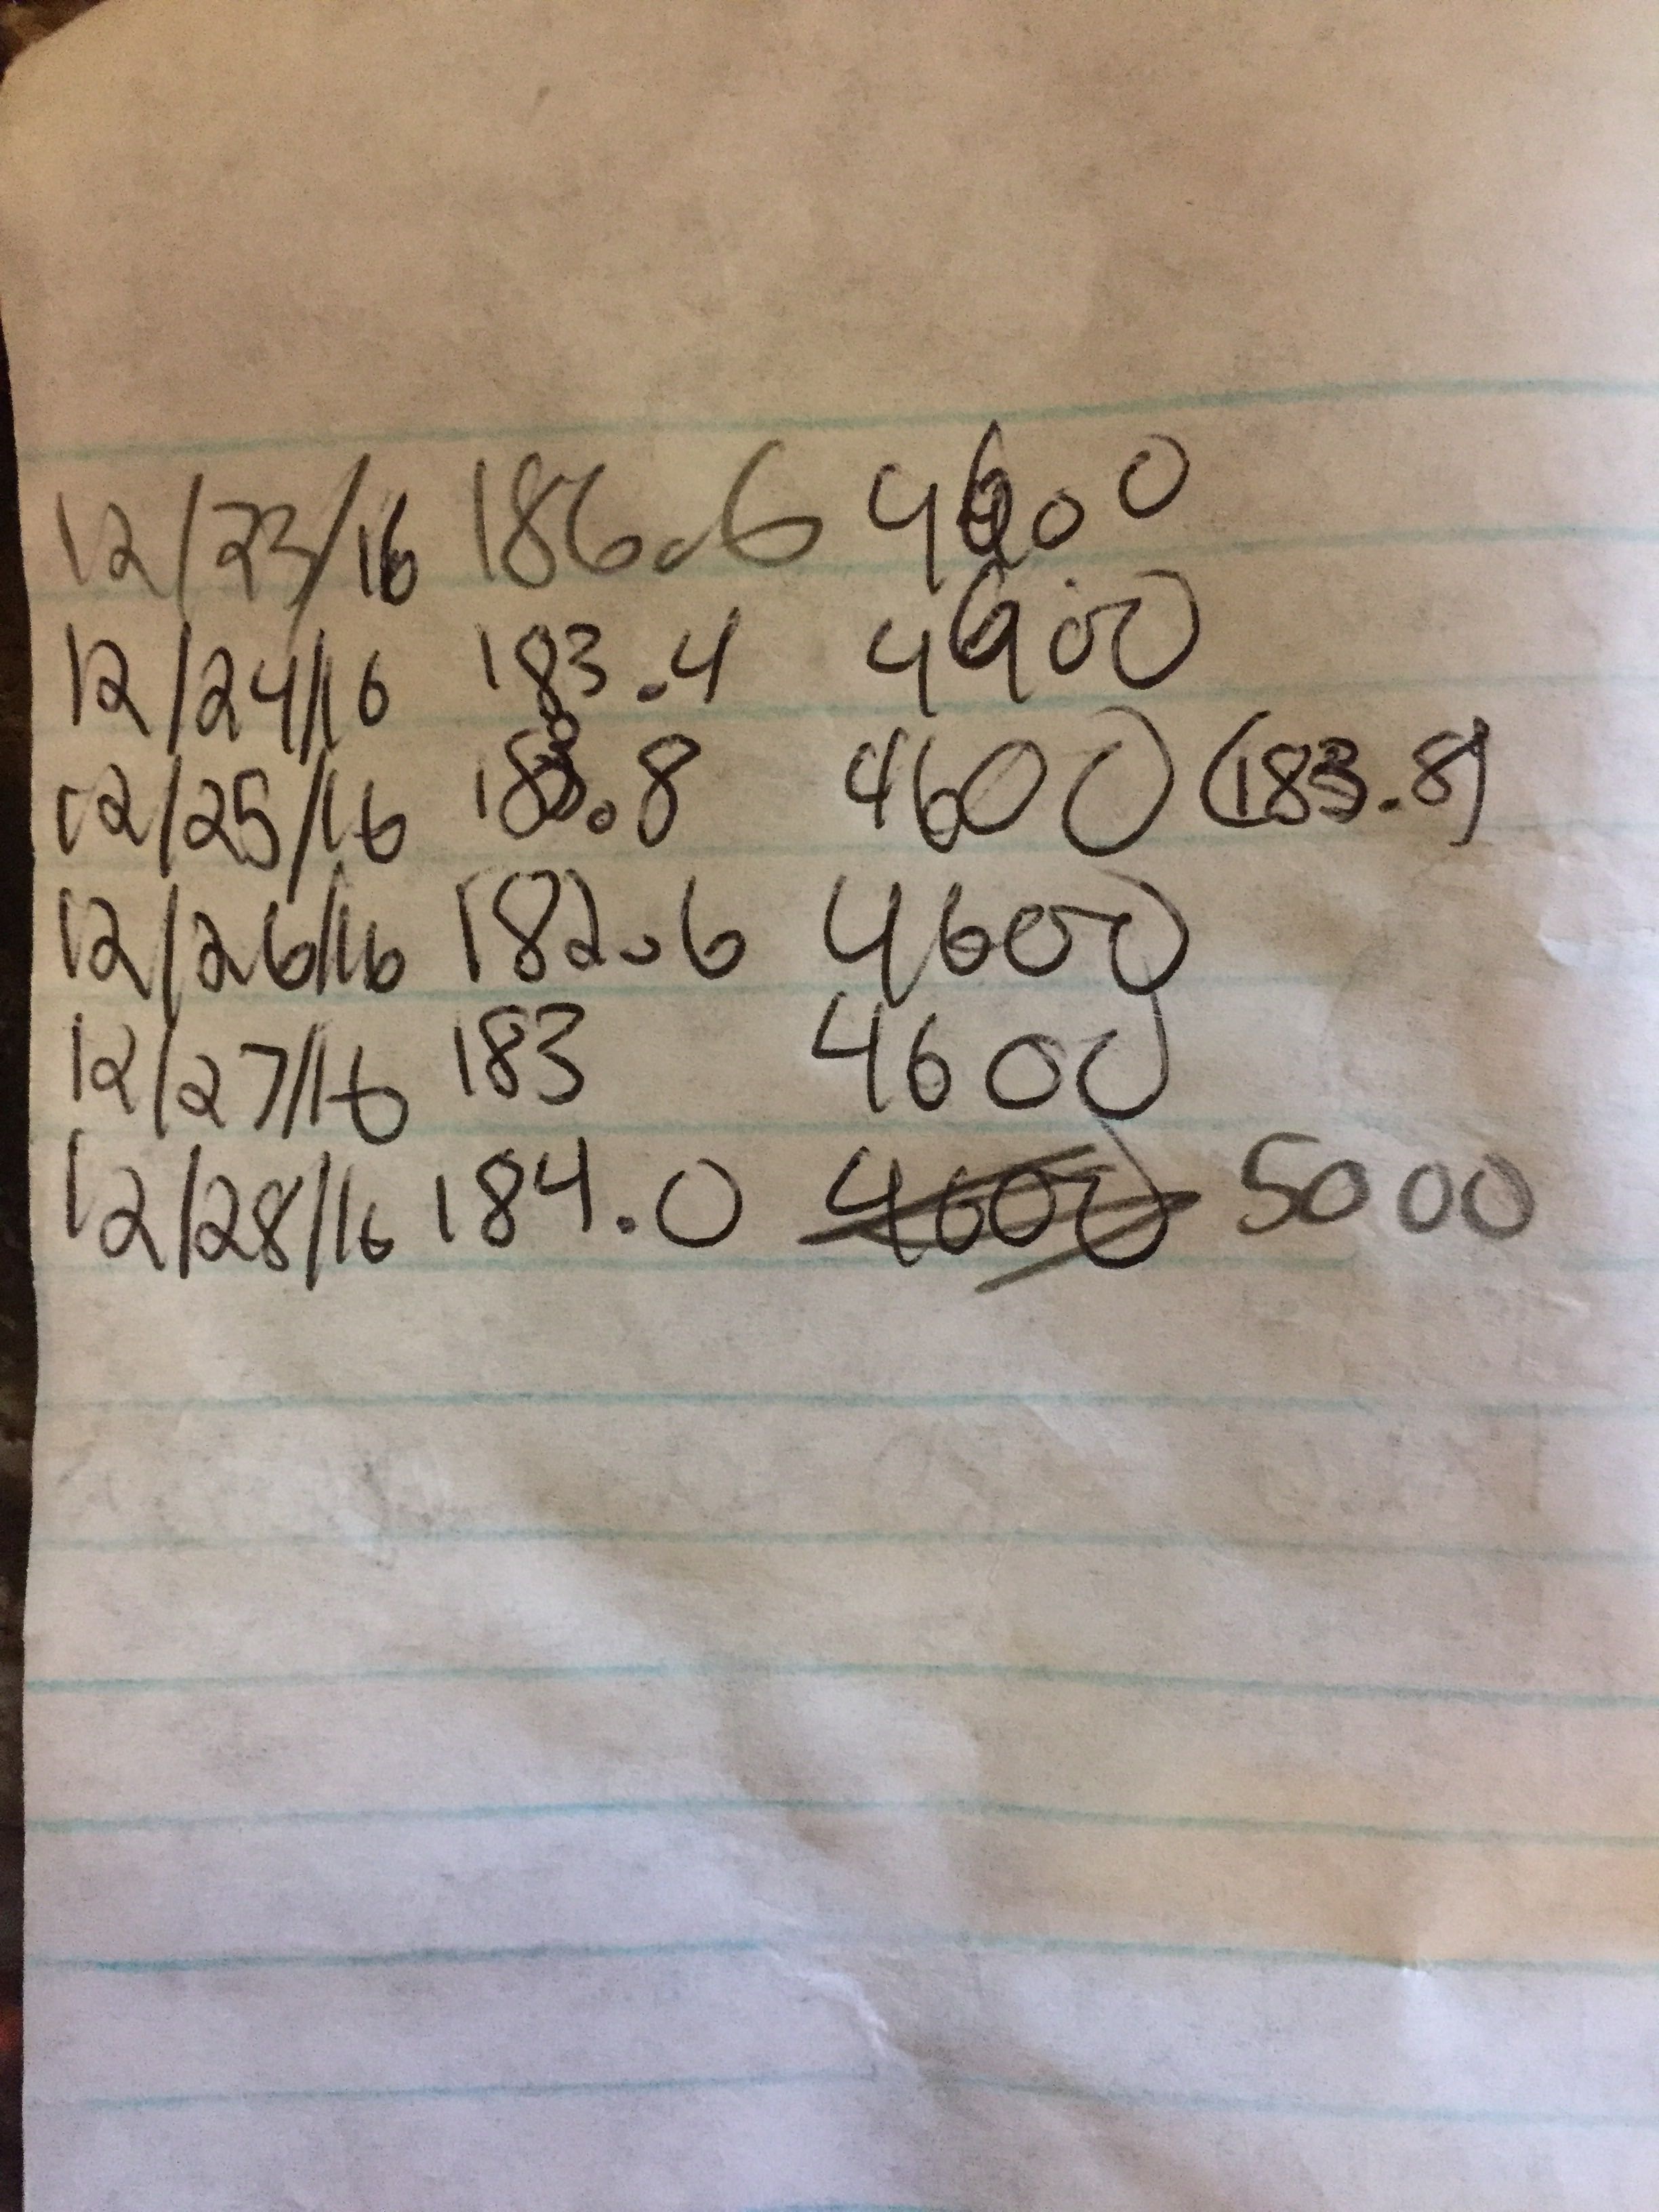 12/23/16 186.6 4600
12/24/16 183.4 4600
12/25/16 183.8 4600 (183.8)
12/26/16 182.6 4600
12/27/16 183 4600
12/28/16 184.0 4600 5000